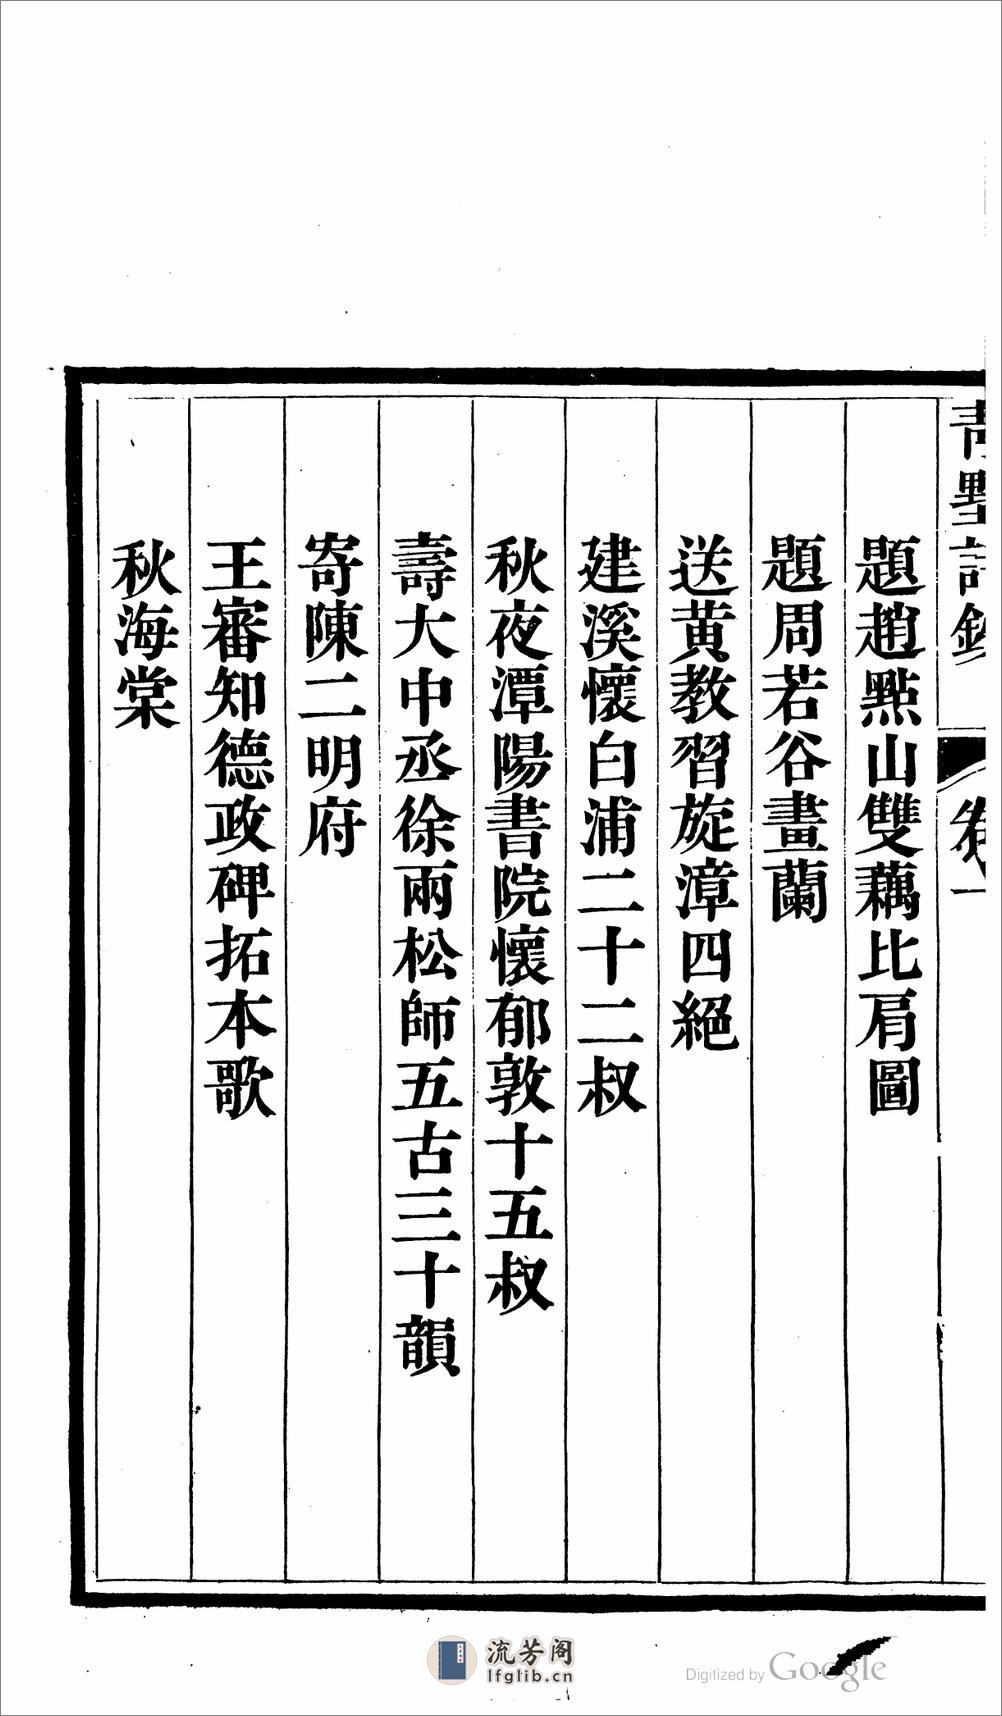 青墅詩鈔 卷一
題趙點山雙藕比肩圖
題周若谷畫蘭
送黃教習旋漳四絕
建溪懷白浦二十二叔
秋夜潭陽書院懷郁敦十五叔
壽大中丞徐兩松師五古三十韻
寄陳二明府
王審知德政碑拓本歌
秋海棠
流芳阁
lfglib.cn
Digitized by Google